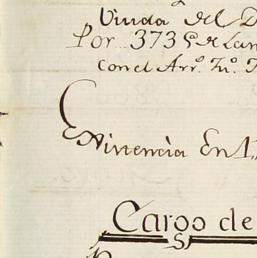 Viuda del D
Por 373 @ de Lan
con el Arr.º Fu.º
Existencia En 1
Cargo de